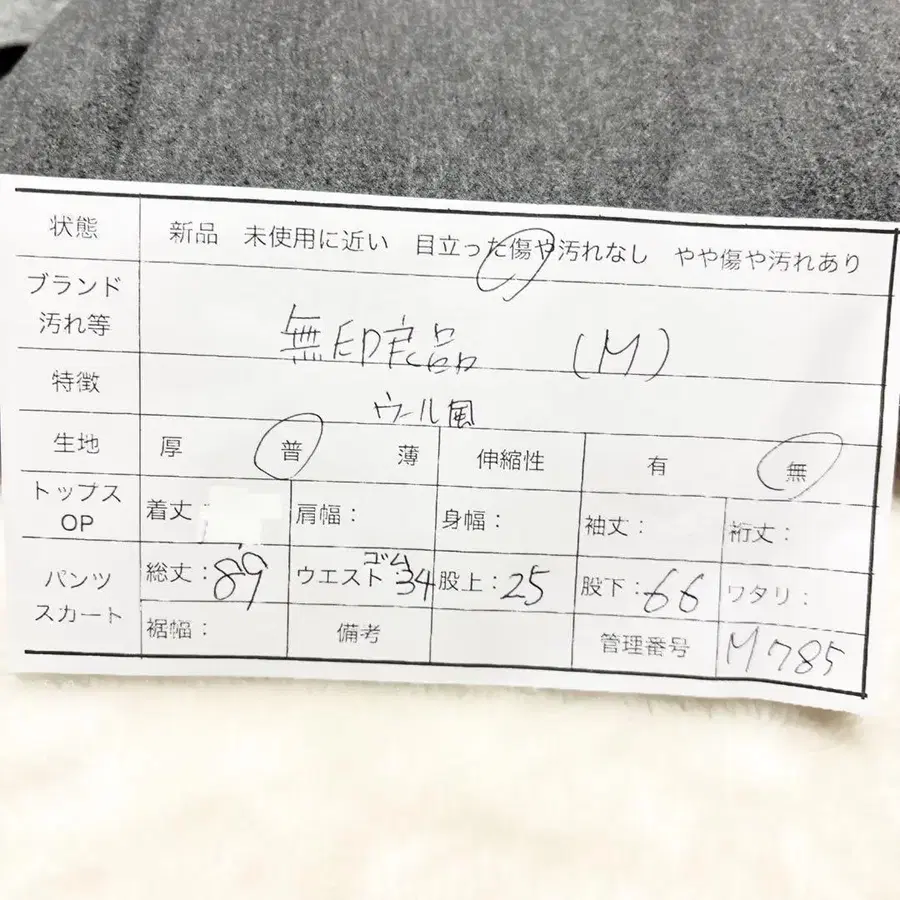 状態 新品 未使用に近い 目立った傷や汚れなし やや傷や汚れあり
ブランド
汚れ等 無印良品 (M)
特徴 ウール風
生地 厚 普 薄 伸縮性 有 無
トップス
OP 着丈 肩幅: 身幅: 袖丈: 裄丈:
パンツ
スカート 総丈:89 ウエスト:ゴム34 股上:25 股下:66 ワタリ:
裾幅: 備考 管理番号 M785